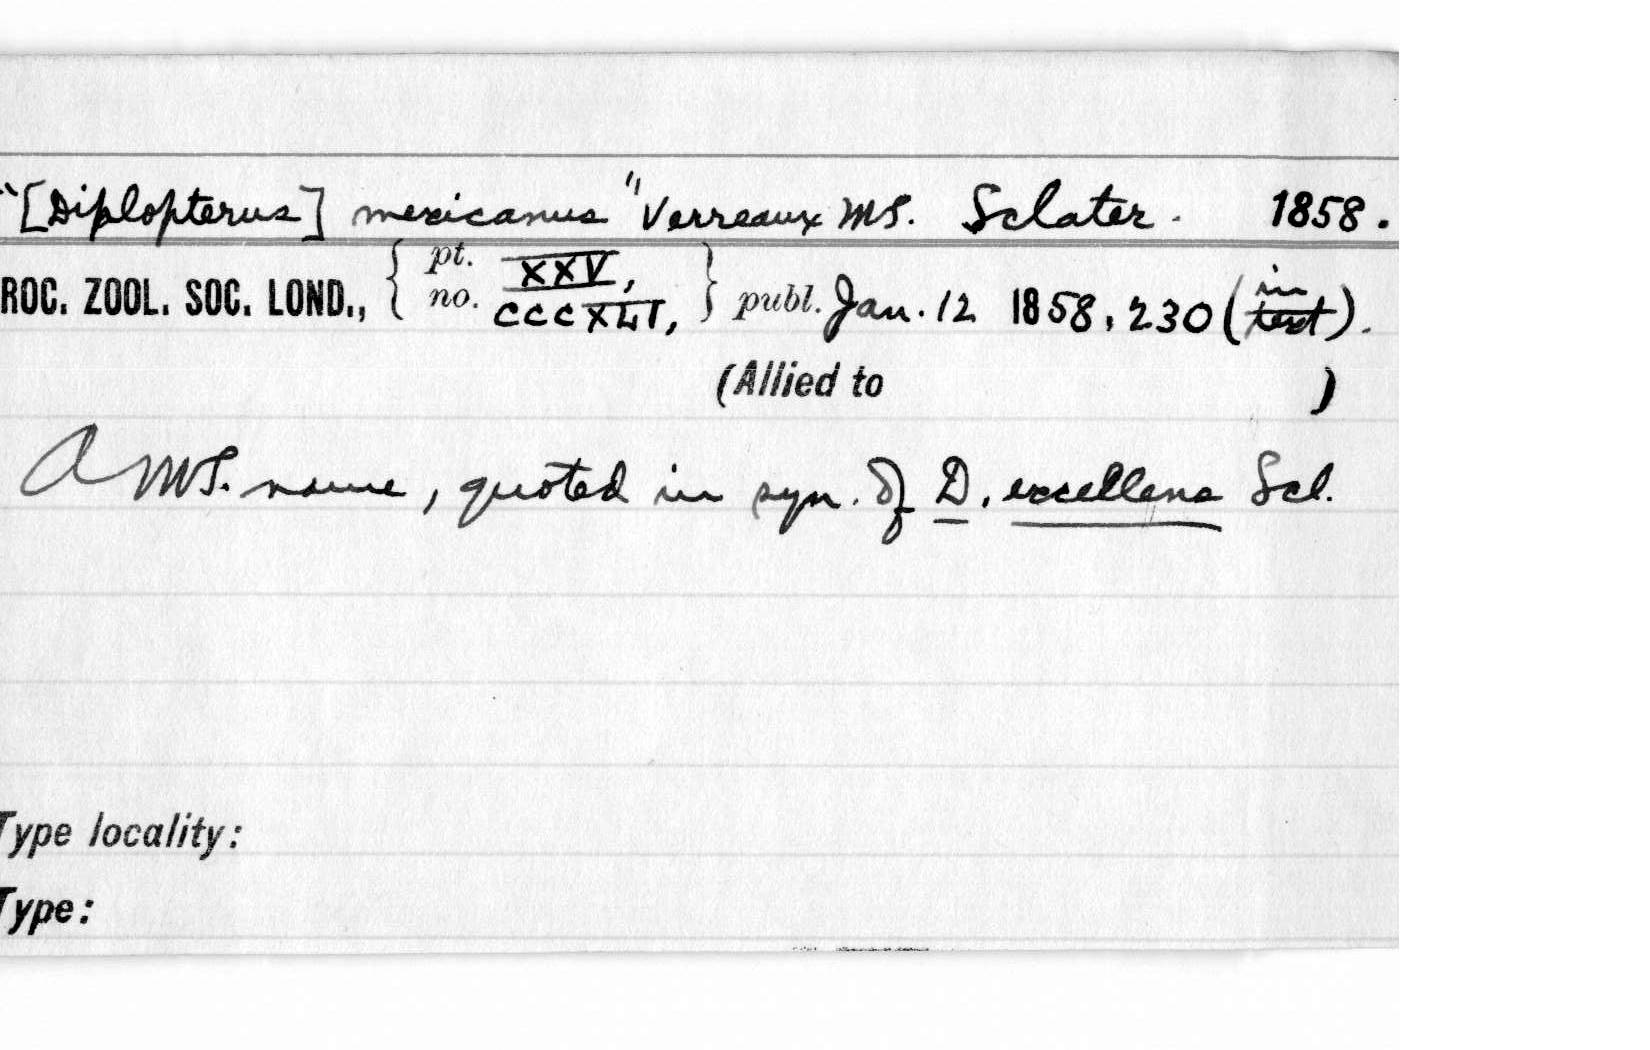 "[Diplopterus] mexicanus" Verreaux MS. Sclater. 1858.
ROC. ZOOL. SOC. LOND., { pt. XXV, no. cccXLI, } publ. Jan. 12 1858, 230 (in text).
(Allied to )
A MS. name, quoted in syn. of D. excellens Scl.
Type locality:
Type: